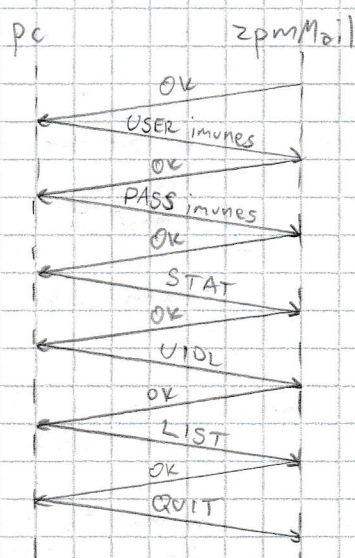 pc zpmMail
OK
USER imunes
OK
PASS imunes
OK
STAT
OK
UIDL
OK
LIST
OK
QUIT